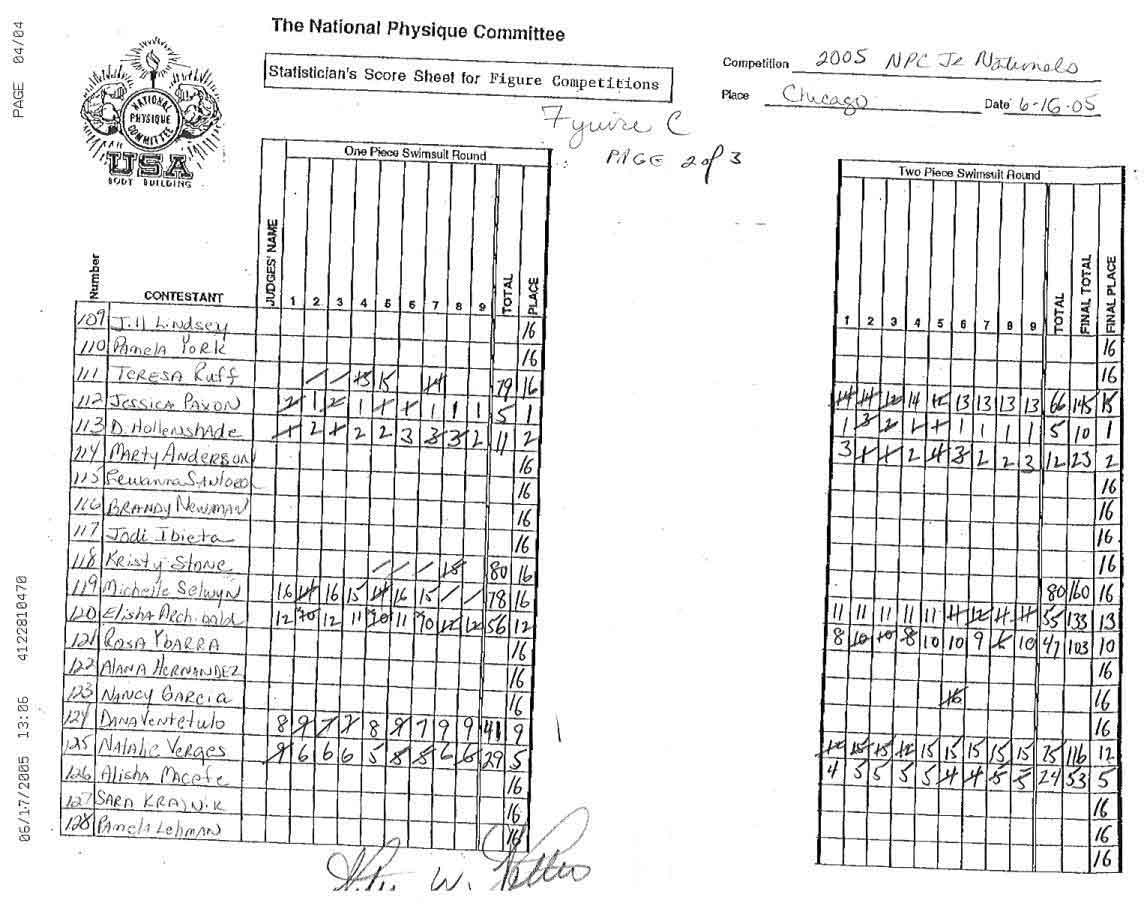 PAGE 04/04
The National Physique Committee
Statistician's Score Sheet for Figure Competitions
Competition 2005 NPC Jr Nationals
Place Chicago Date 6-16-05
Figure C
PAGE 2 of 3
NATIONAL PHYSIQUE COMMITTEE
USA
BODY BUILDING
One Piece Swimsuit Round
Two Piece Swimsuit Round
Number CONTESTANT JUDGES' NAME 1 2 3 4 5 6 7 8 9 TOTAL PLACE 1 2 3 4 5 6 7 8 9 TOTAL FINAL TOTAL FINAL PLACE
109 Jill Lindsey 16 16
110 Pamela York 16 16
111 Teresa Ruff 15 79 16 14 14 14 13 13 13 13 66 145 15
112 Jessica Paxon 2 1 2 1 1 1 1 1 1 5 1 1 3 2 1 1 1 1 1 1 5 10 1
113 D. Hollenshade 1 2 1 2 2 3 3 3 2 11 2 3 1 1 2 4 3 2 2 3 12 23 2
114 Marty Anderson 16 16
115 16 16
116 Brandy Newman 16 16
117 Jodi Ibieta 16 16
118 Kristy Stone 80 16 80 160 16
119 Michelle Selwyn 16 14 16 15 14 16 15 78 16 11 11 11 11 11 11 12 11 11 55 133 13
120 Elisha Archibald 12 10 12 11 10 11 10 12 12 56 12 8 10 10 8 10 10 9 10 47 103 10
121 Rosa Ybarra 16 16
122 Alana Hernandez 16 16 16
123 Nancy Garcia 16 16
124 Dana Ventetulo 8 9 7 7 8 9 7 9 9 41 9 15 15 15 15 15 15 15 75 116 12
125 Natalie Verges 9 6 6 6 5 8 8 6 6 29 5 4 5 5 5 5 4 4 5 5 24 53 5
126 Alisha 16 16
127 Sara Krajnik 16 16
128 Pamela Lehman 16 16
06/17/2005 13:06 4122810470